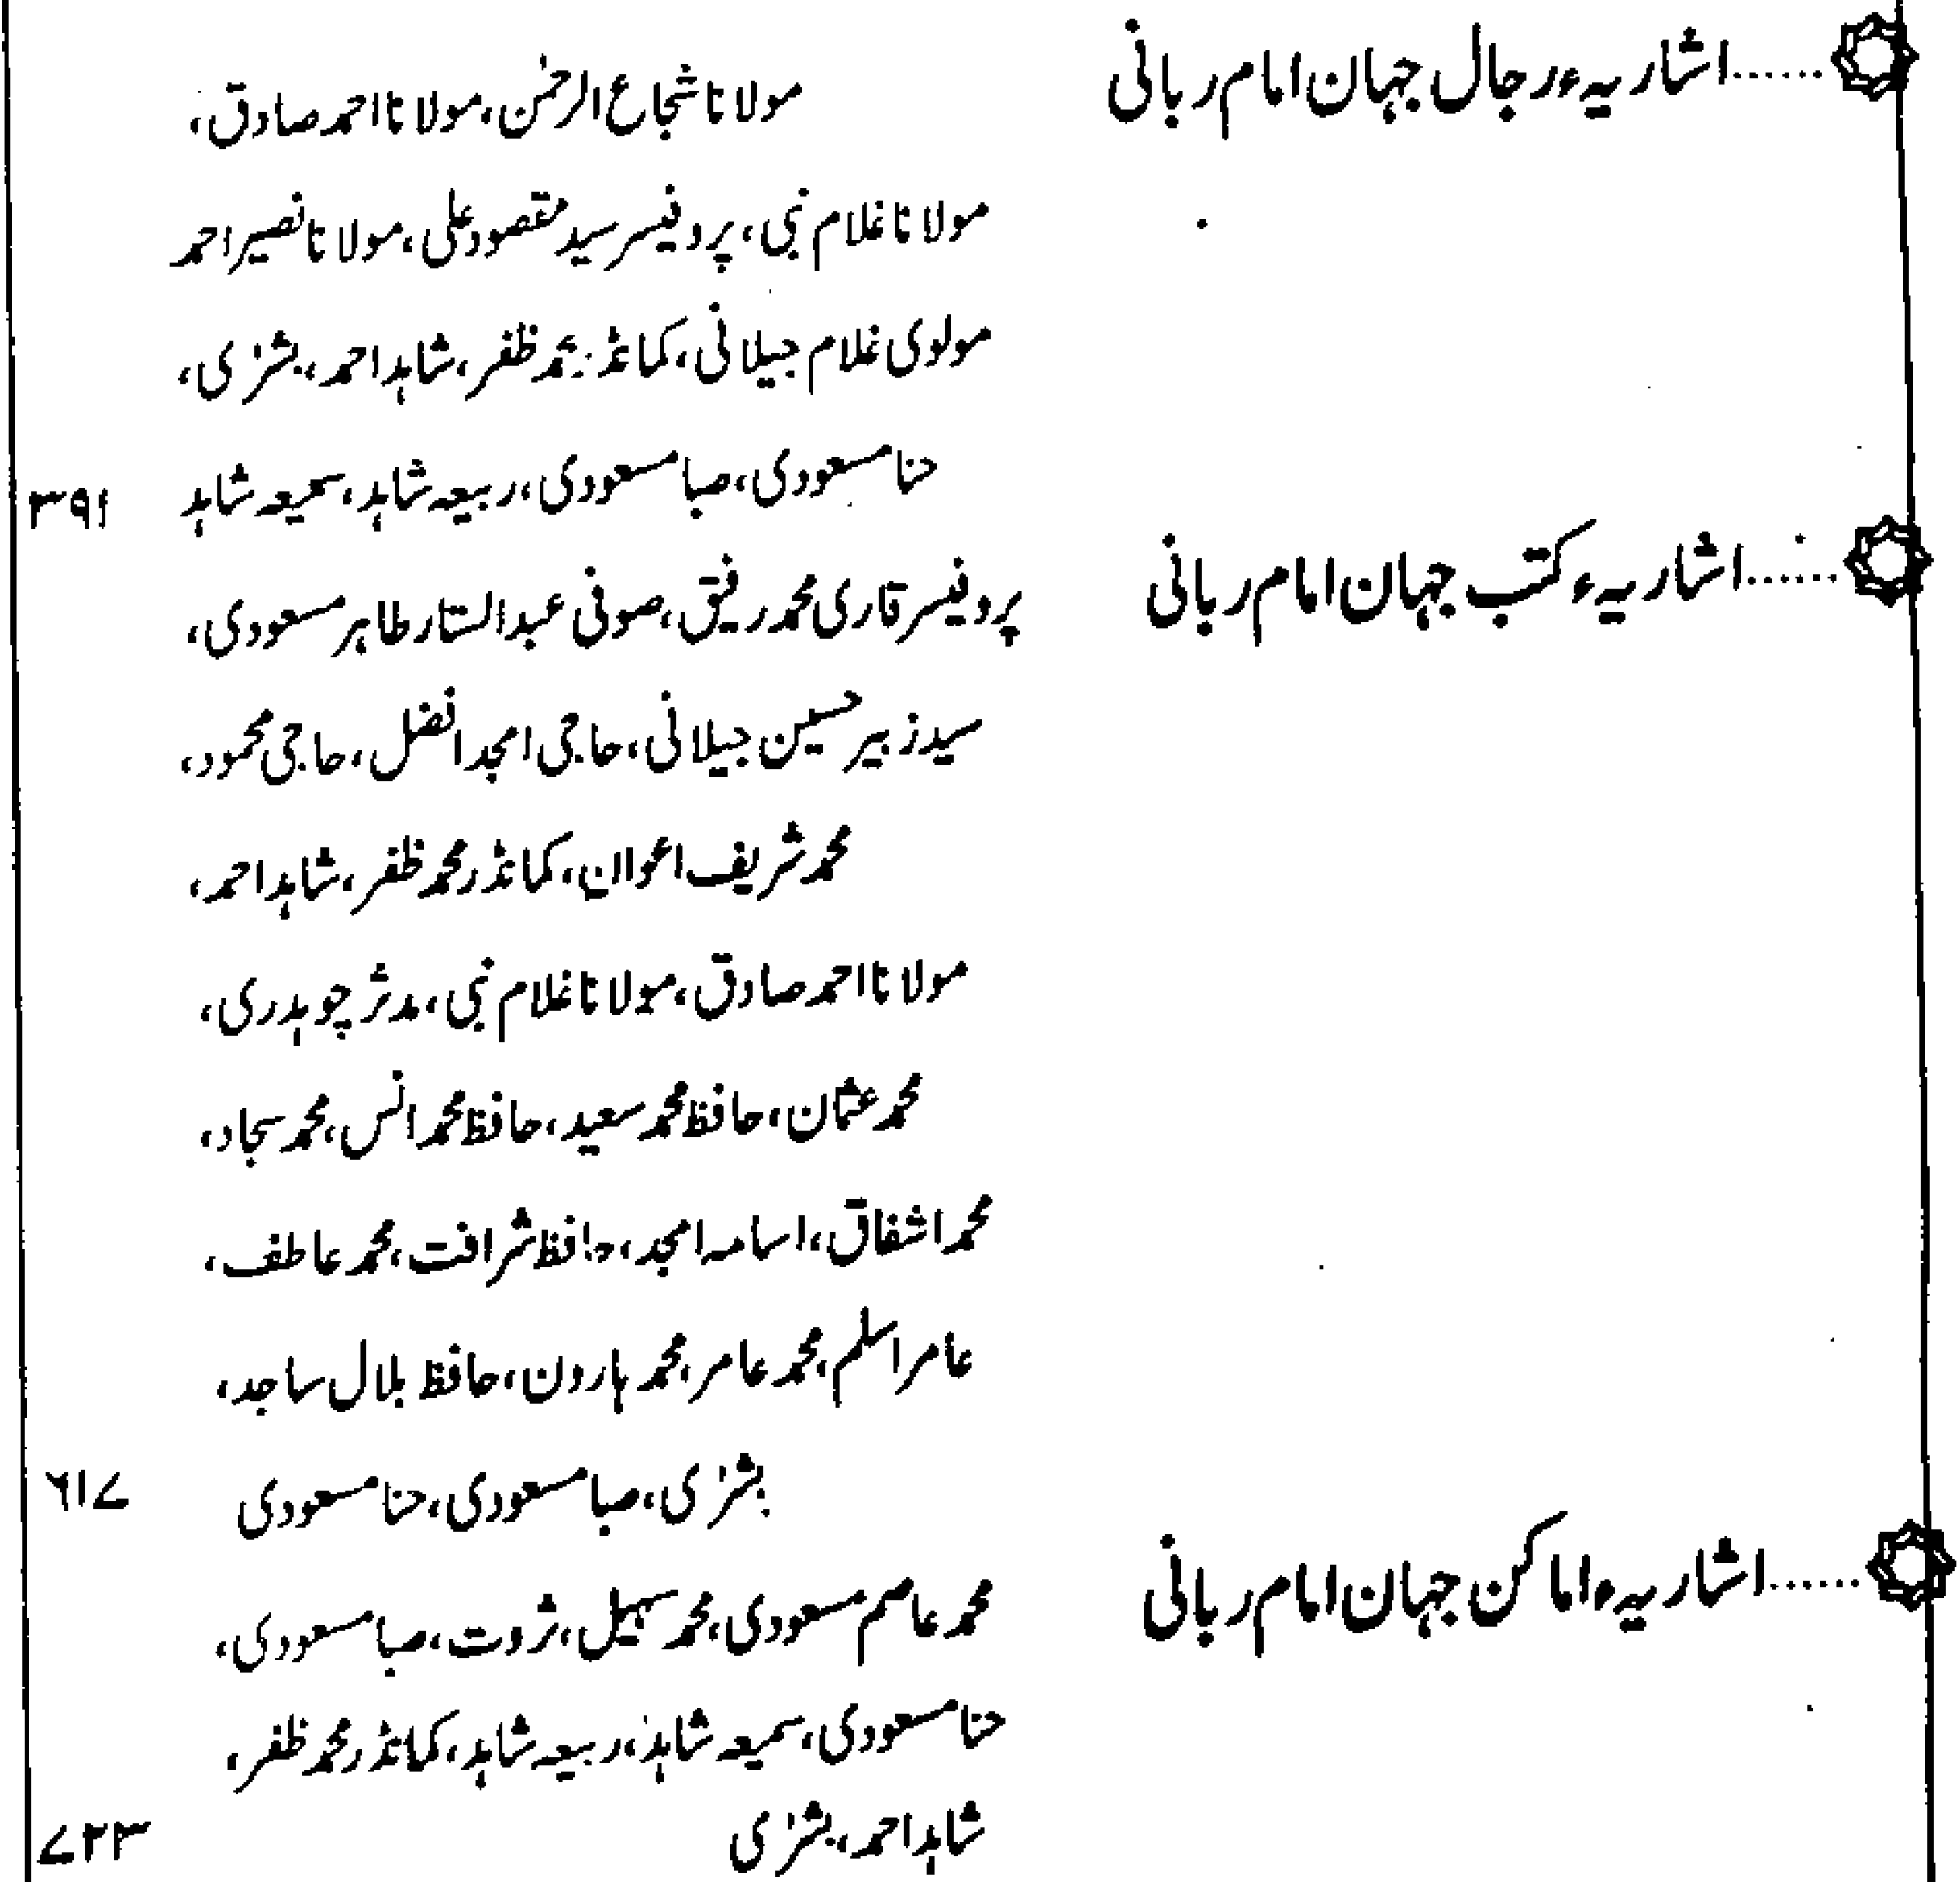 ......اشاریہء رجال جہان امام ربانی
مولانا شجاع الرحمٰن، مولانا احمد صادق،
مولانا غلام نبی، پروفیسر سید مقصود علی، مولانا نصیر احمد
مولوی غلام جیلانی، کمانڈر محمد ظفر، شاہد احمد، بشرٰی،
حنا مسعودی، صبا مسعودی، ربیعہ شاہد، سمیعہ شاہد ۳۹۱
......اشاریہء کتب جہان امام ربانی
پروفیسر قاری محمد رفیق، صوفی عبدالستار طاہر مسعودی،
سید زبیر حسین جیلانی، حاجی امجد افضل، حاجی محمود،
محمد شریف اعوان، کمانڈر محمد ظفر، شاہد احمد،
مولانا احمد صادق، مولانا غلام نبی، مدثر چوہدری،
محمد عثمان، حافظ محمد سعید، حافظ محمد انس، محمد سجاد،
محمد اشفاق، اسامہ امجد، حافظ شرافت، محمد عاطف،
عامر اسلم، محمد عامر، محمد ہارون، حافظ بلال ساجد،
بشرٰی، صبا مسعودی، حنا مسعودی ۶۱۷
......اشاریہء اماکن جہان امام ربانی
محمد عاصم مسعودی، محمد سہیل، ثروت، صبا مسعودی،
حنا مسعودی، سمیعہ شاہد، ربیعہ شاہد، کمانڈر محمد ظفر،
شاہد احمد، بشرٰی ۷۲۳